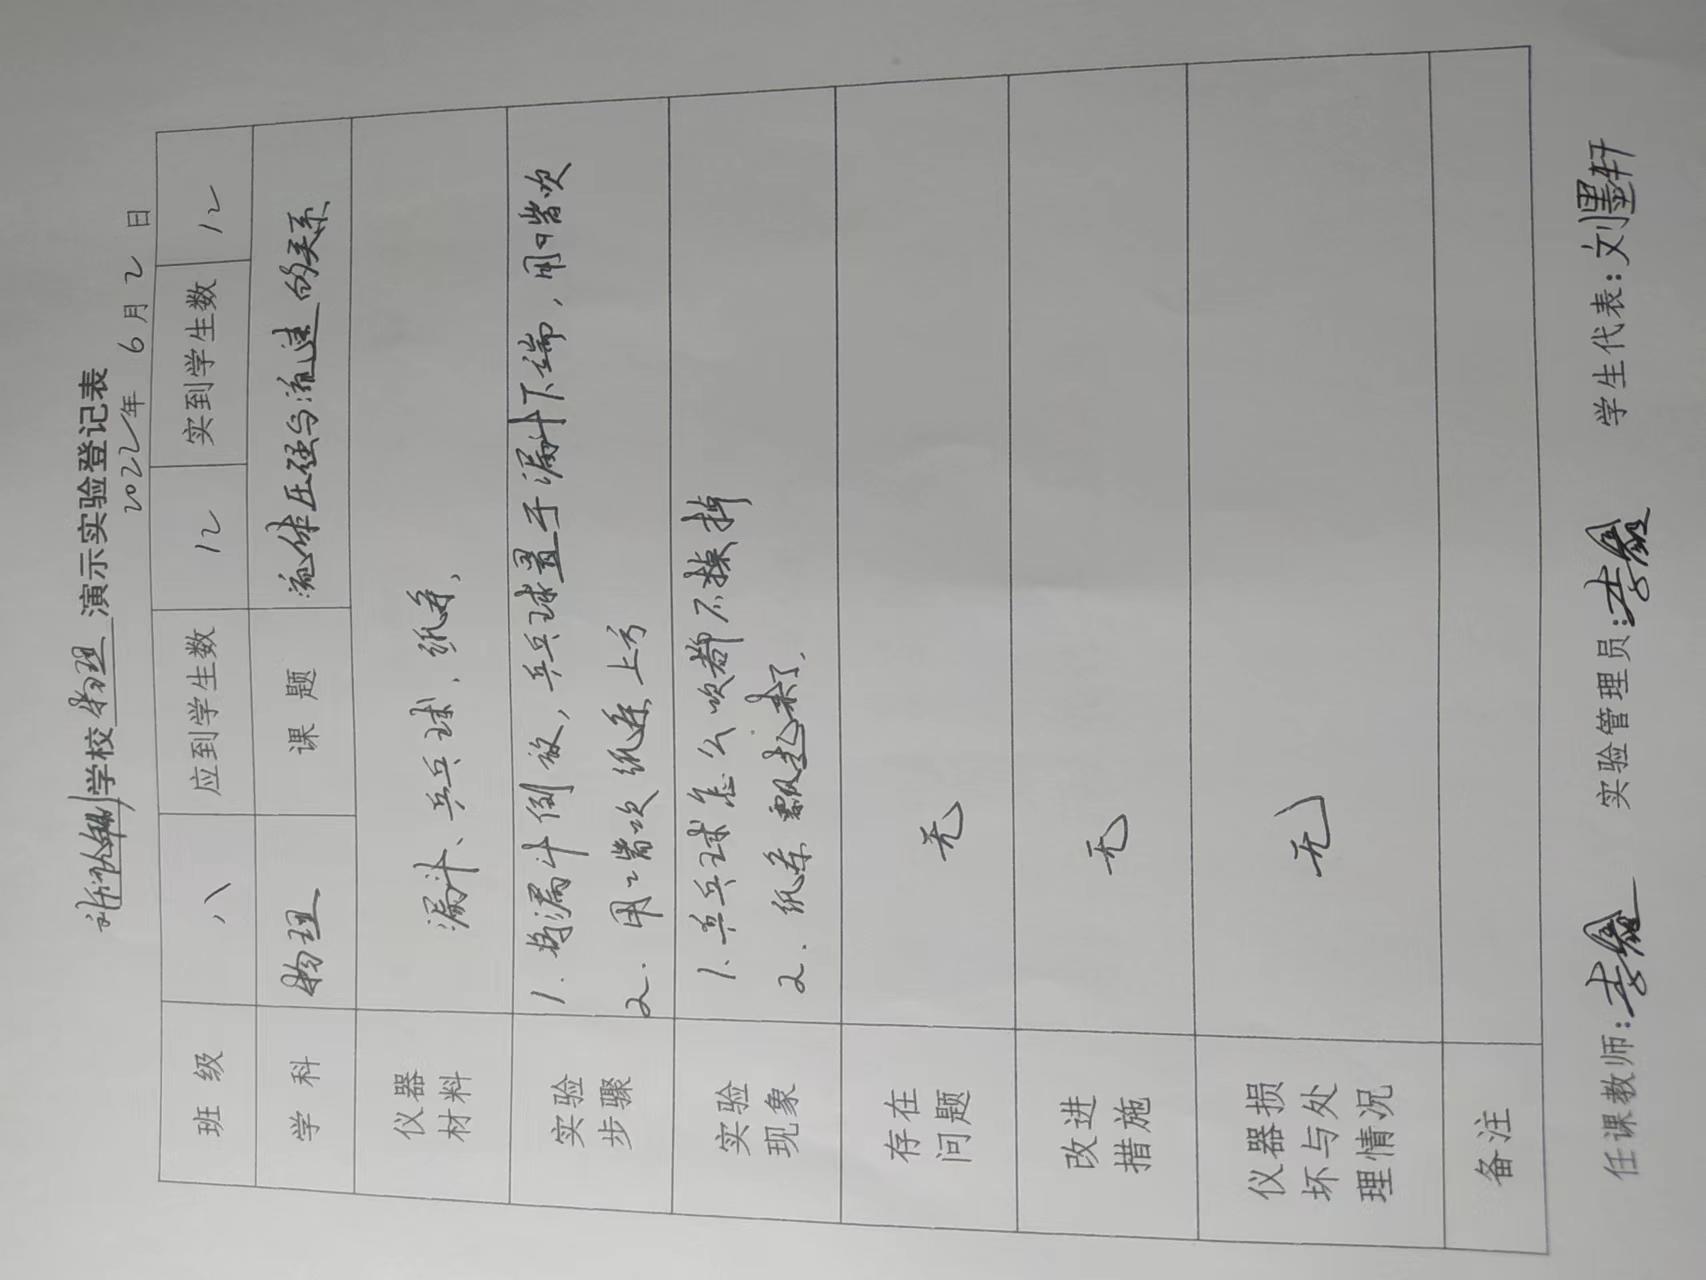 学校物理演示实验登记表
2022年 6月 2日
班 级 八 应到学生数 12 实到学生数 12
学 科 物理 课 题 流体压强与流速的关系
仪器材料 漏斗、乒乓球、纸条.
实验步骤 1. 将漏斗倒放,乒乓球置于漏斗下端,用口嘴吹
2. 用口嘴吹纸条上方
实验现象 1、乒乓球怎么吹都不掉
2、纸条飘起来了.
存在问题 无
改进措施 无
仪器损坏与处理情况 无
备注
任课教师:李鑫 实验管理员:李鑫 学生代表:刘墨轩